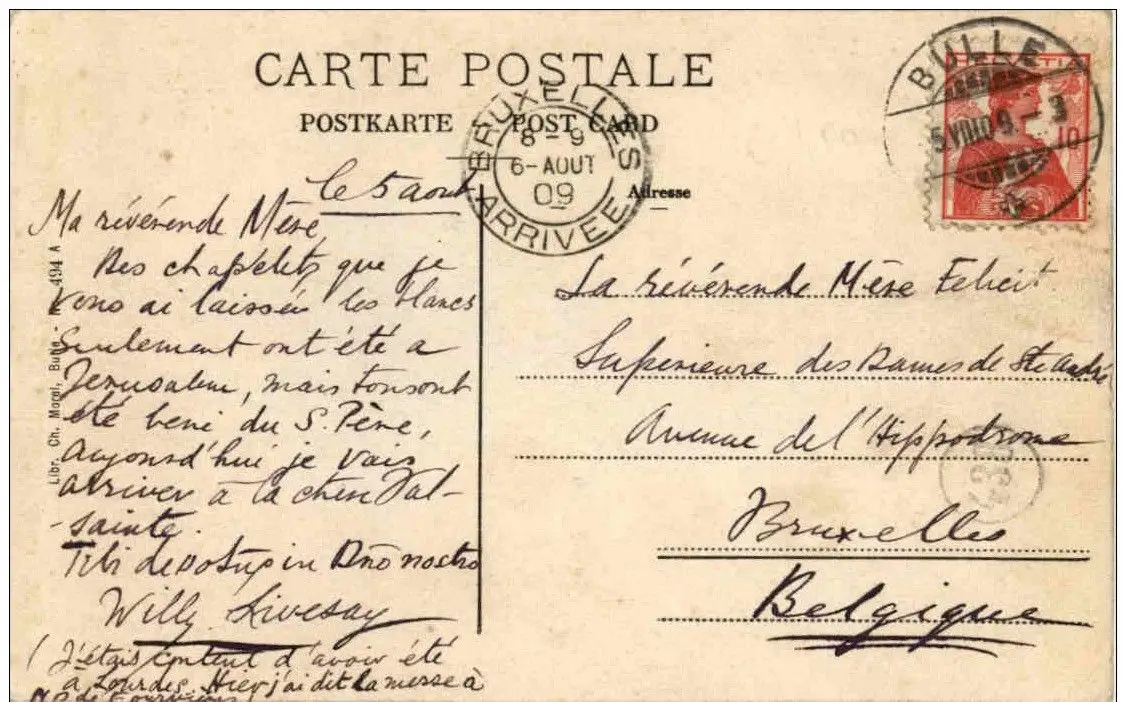 CARTE POSTALE
POSTKARTE POST CARD
Adresse
BRUXELLES
8-9
6-AOUT
09
ARRIVEE
BULLE
5.VIII.09.-3
HELVETIA
10
le 5 aout
Ma révérende Mère
Des chapelets que je
vous ai laissés les blancs
seulement ont été a
Jerusalem, mais tous ont
été beni du S. Père,
Aujourd'hui je vais
arriver à la chere Val-
-sainte.
Tibi devotus in Dno nostro
Willy Livesay
(J'étais content d'avoir été
a Lourdes. Hier j'ai dit la messe à
N D de Fourvière
La révérende Mère Felicit
Superieure des Dames de St André
Avenue de l'Hippodrome
Bruxelles
Belgique
Libr. Ch. Morel, Bulle 494 A